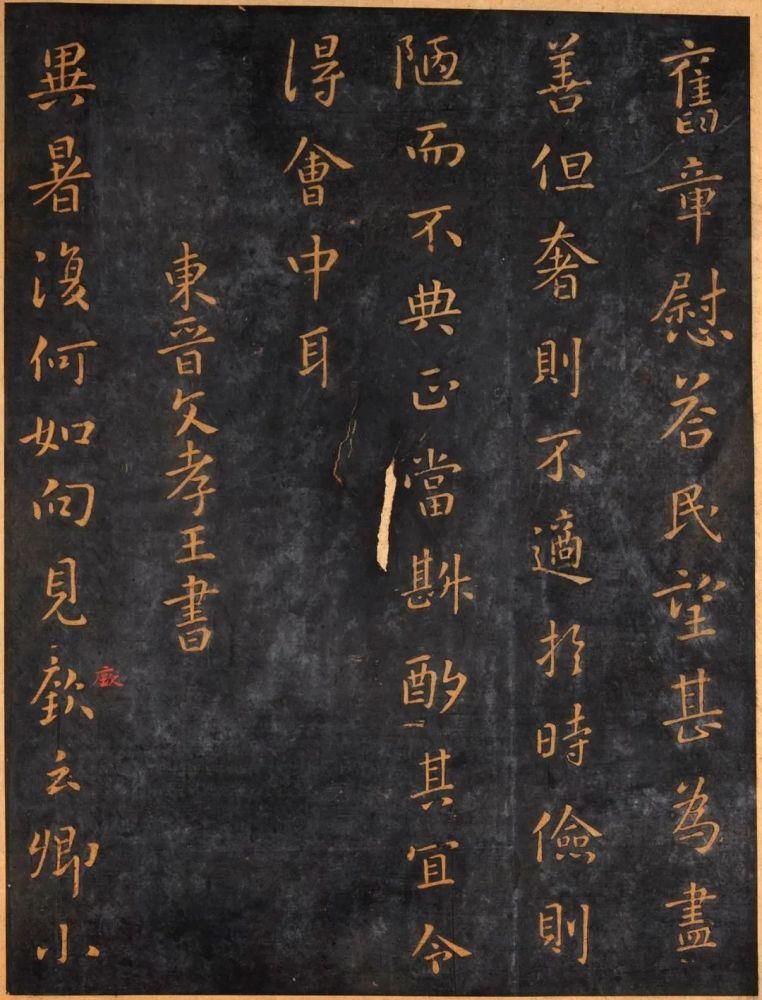 舊章慰荅民望甚為盡
善但奢則不適於時儉則
陋而不典正當斟酌其宜令
得會中耳
東晉文孝王書
異暑復何如向見廞云卿小
廞